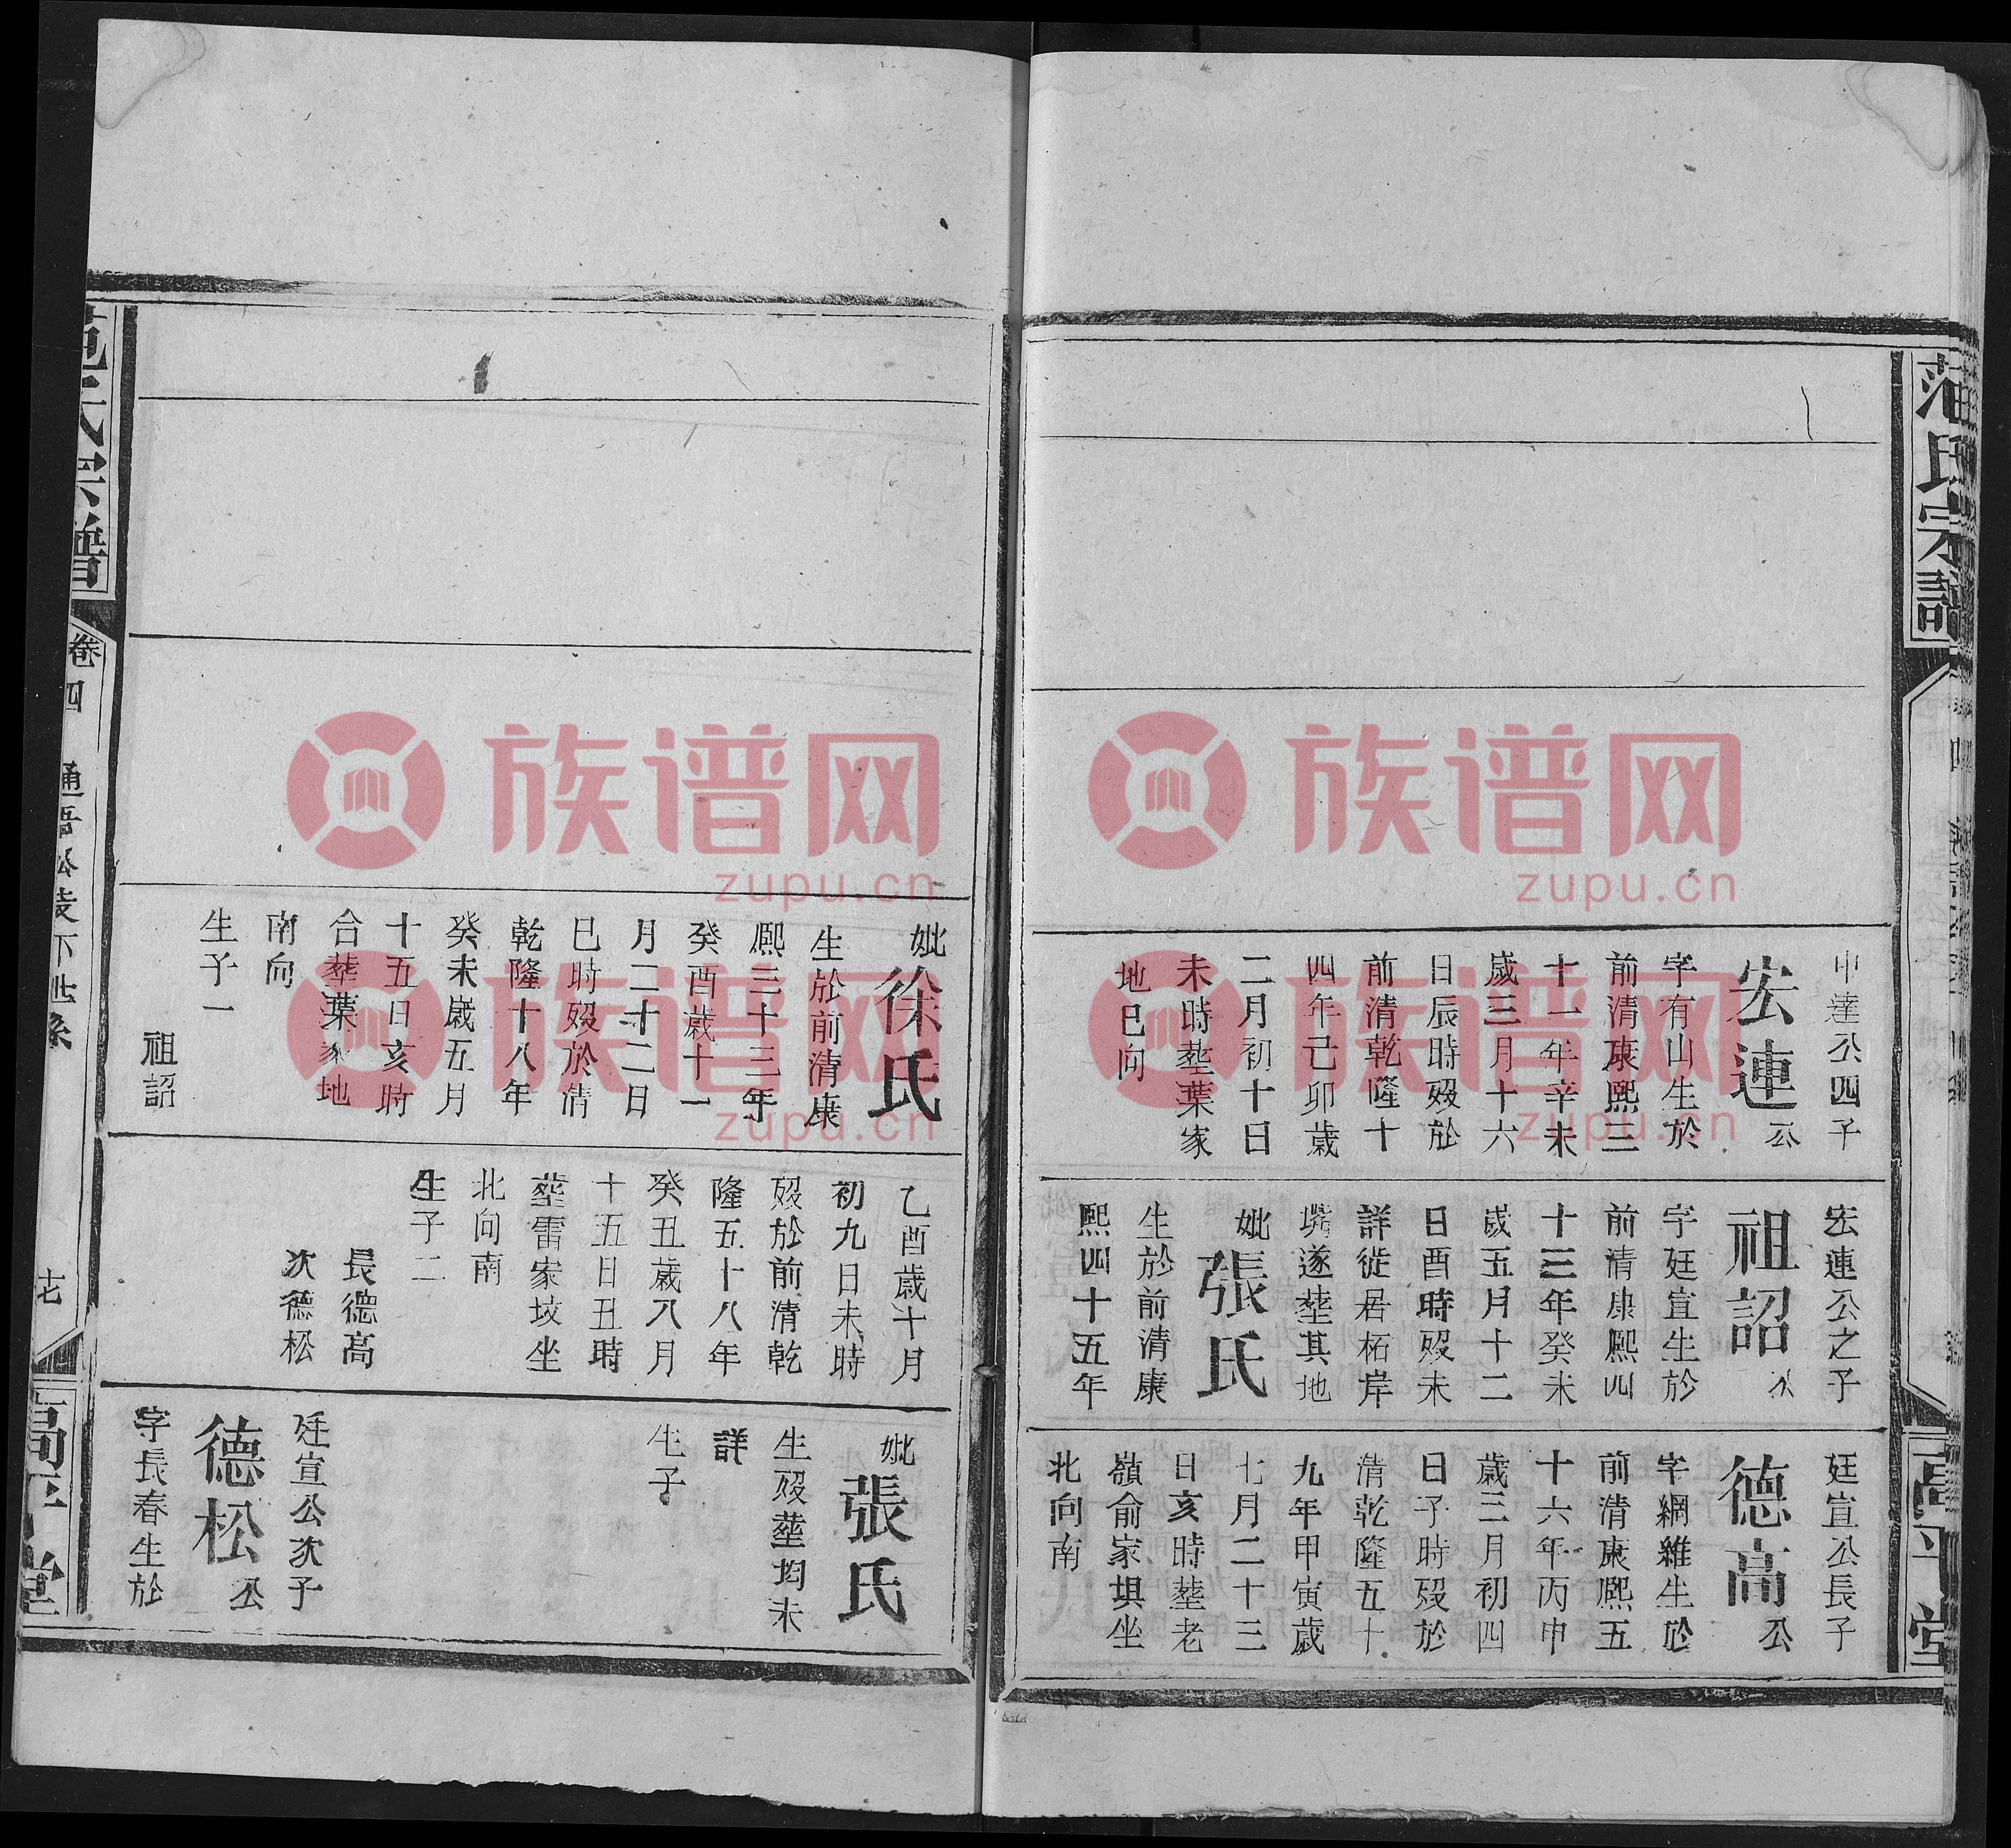 范氏宗譜
高平堂
申達公四子
宏連公
字有山生於
前清康熙三
十一年辛未
歲三月十六
日辰時歿於
前清乾隆十
四年己卯歲
二月初十日
未時塟葉家
地巳向
宏連公之子
祖詔公
字廷宣生於
前清康熙四
十三年癸未
歲五月十二
日酉時歿未
詳徙居柘岸
塝遂塟其地
妣張氏
生於前清康
熙四十五年
廷宣公長子
德高公
字綱維生於
前清康熙五
十六年丙申
歲三月初四
日子時歿於
清乾隆五十
九年甲寅歲
七月二十三
日亥時塟老
嶺俞家垻坐
北向南
妣徐氏
生於前清康
熙三十三年
癸酉歲十一
月二十二日
巳時歿於清
乾隆十八年
癸未歲五月
十五日亥時
合塟葉家地
南向
生子一
祖詔
乙酉歲十月
初九日未時
歿於前清乾
隆五十八年
癸丑歲八月
十五日丑時
塟雷家坟坐
北向南
生子二
長德高
次德松
妣張氏
生歿塟均未
詳
生子
廷宣公次子
德松公
字長春生於
范氏宗譜
卷四
通吾公支下世系
十七
高平堂
族谱网
zupu.cn
族谱网
zupu.cn
族谱网
zupu.cn
族谱网
zupu.cn